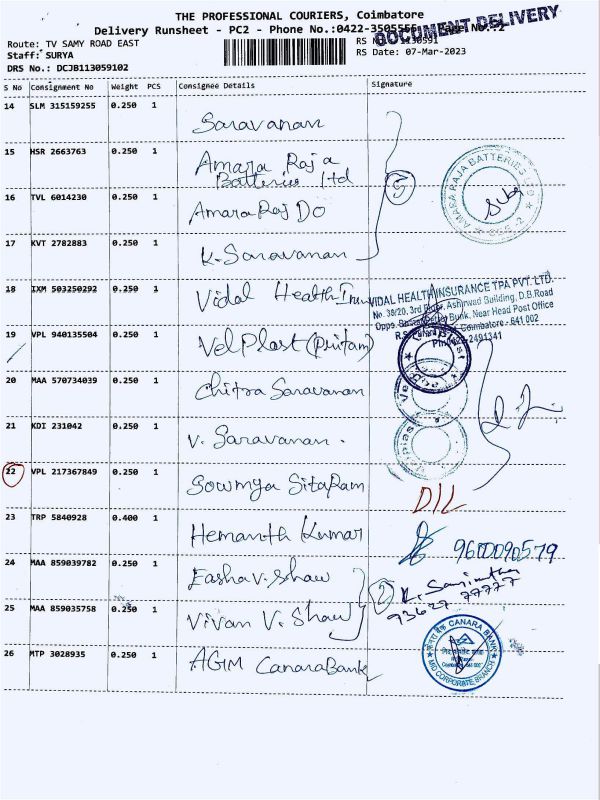 THE PROFESSIONAL COURIERS, Coimbatore
Delivery Runsheet - PC2 - Phone No.:0422-3505555 Page No.:2
DOCUMENT DELIVERY
Route: TV SAMY ROAD EAST
Staff: SURYA
RS Date: 07-Mar-2023
DRS No.: DCJB113059102
S No Consignment No Weight PCS Consignee Details Signature
14 SLM 315159255 0.250 1 Saravanan
15 HSR 2663763 0.250 1 Amara Raja
Batteries ltd
16 TVL 6014230 0.250 1 Amara Raj Do
5
AMARA RAJA BATTERIES
17 KVT 2782883 0.250 1 K. Saravanan
18 IXM 503250292 0.250 1 Vidal Health
VIDAL HEALTH INSURANCE TPA PVT. LTD.
No. 38/20, 3rd Floor, Ashirwad Building, D.B.Road
Bank, Near Head Post Office
Coimbatore - 641 002
2491341
19 VPL 940135504 0.250 1 Vel Plast (Pritam)
20 MAA 570734039 0.250 1 Chitra Saravanan
21 KDI 231042 0.250 1 V. Saravanan.
22 VPL 217367849 0.250 1 Sowmya SitaRam
DIL
23 TRP 5840928 0.400 1 Hemanth Kumar
9600090579
24 MAA 859039782 0.250 1 Easha V. Shaw
2
93627 77777
25 MAA 859035758 0.250 1 Vivan V. Shaw
26 MTP 3028935 0.250 1 AGM Canara Bank
CANARA BANK
MID CORPORATE BRANCH